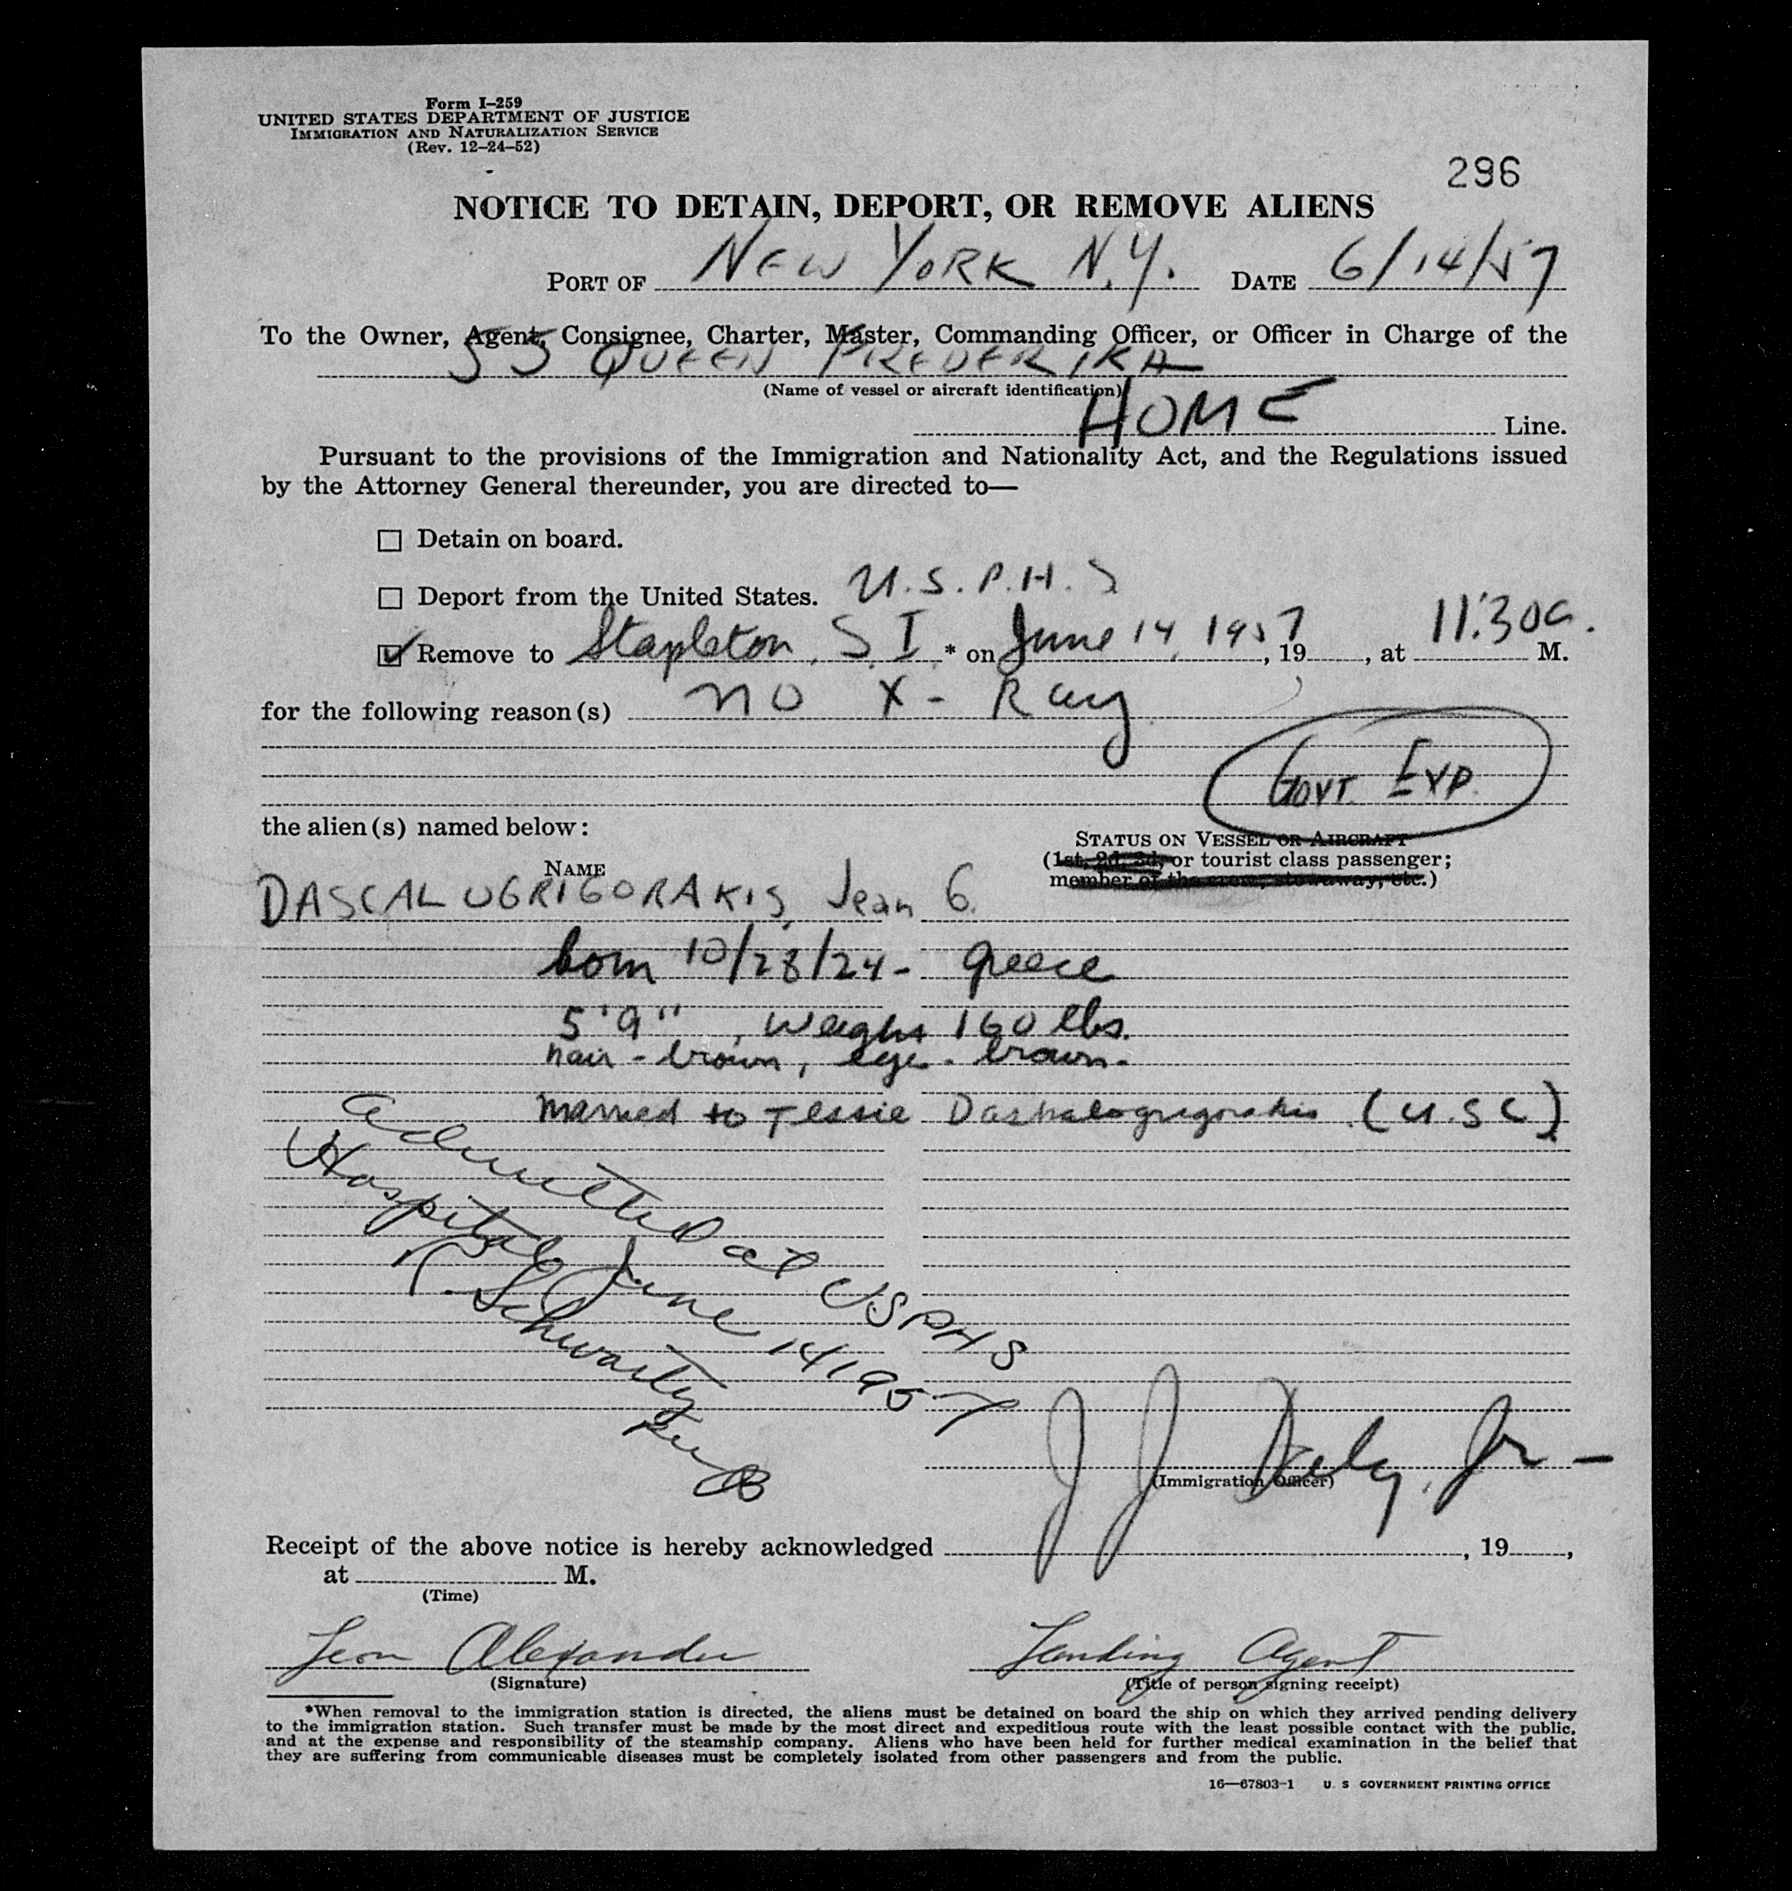 Form I-259
UNITED STATES DEPARTMENT OF JUSTICE
IMMIGRATION AND NATURALIZATION SERVICE
(Rev. 12-24-52)
296
NOTICE TO DETAIN, DEPORT, OR REMOVE ALIENS
PORT OF NEW YORK N.Y. DATE 6/14/57
To the Owner, Agent, Consignee, Charter, Master, Commanding Officer, or Officer in Charge of the
SS QUEEN FREDERIKA
(Name of vessel or aircraft identification)
HOME Line.
Pursuant to the provisions of the Immigration and Nationality Act, and the Regulations issued
by the Attorney General thereunder, you are directed to—
Detain on board.
Deport from the United States. U.S.P.H.S
Remove to Stapleton, S.I.* on June 14, 1957, 19, at 11:30a. M.
for the following reason(s) no X-Ray
GOVT. EXP.
the alien(s) named below:
STATUS ON VESSEL OR AIRCRAFT
(1st, 2d, 3d, or tourist class passenger;
member of the crew, stowaway, etc.)
NAME
DASCALUGRIGORAKIS, Jean G.
born 10/28/24 - Greece
5'9", weight 160 lbs.
hair - brown, eyes - brown.
Married to Tessie Daskalogrigorakis (U.S.C)
Admitted at USPHS
Hospital June 14 1957
Schwartz
(Immigration Officer)
J J Daly, Jr -
Receipt of the above notice is hereby acknowledged , 19 ,
at M.
(Time)
Leon Alexander Landing Agent
(Signature) (Title of person signing receipt)
*When removal to the immigration station is directed, the aliens must be detained on board the ship on which they arrived pending delivery
to the immigration station. Such transfer must be made by the most direct and expeditious route with the least possible contact with the public,
and at the expense and responsibility of the steamship company. Aliens who have been held for further medical examination in the belief that
they are suffering from communicable diseases must be completely isolated from other passengers and from the public.
16—67803-1 U. S GOVERNMENT PRINTING OFFICE